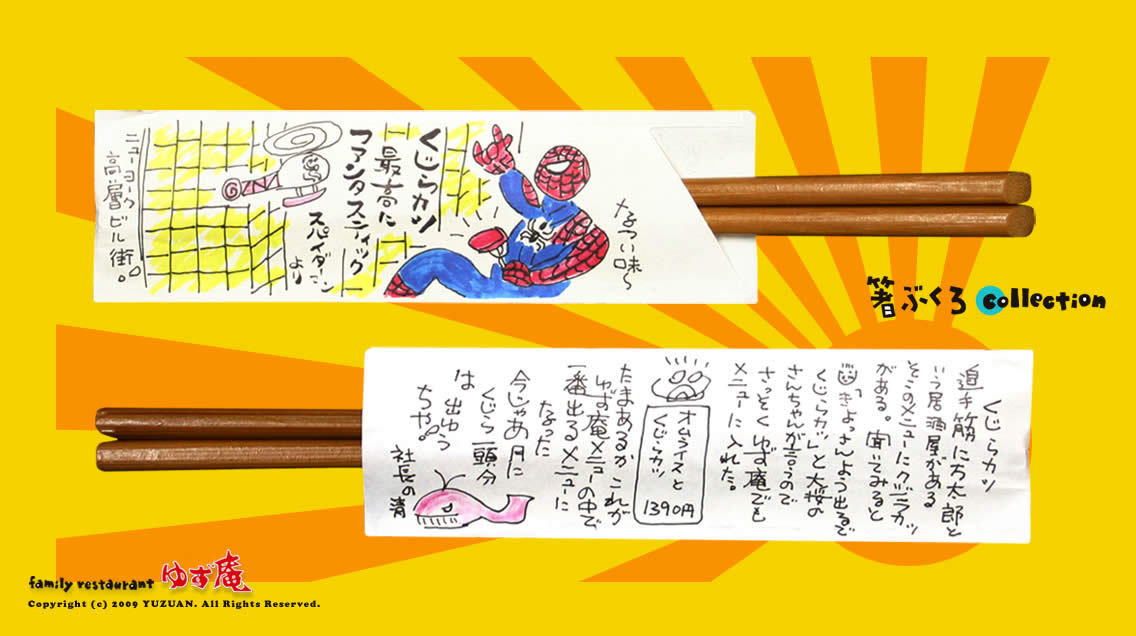 味〜
くじらカツ
最高に
ファンタスティック
スパイダーマン
より
ニューヨーク
高層ビル街。
箸ぶくろ collection
くじらカツ
追手筋に 太郎と
いう居酒屋がある
そこのメニューにクジラカツ
がある。聞いてみると
「きよっさんよう出るで
くじらカツ」と大桜の
さんちゃんが言うので
さっそくゆず庵でも
メニューに入れた。
オムライスと
くじらカツ
1390円
たまあるかこれが
ゆず庵メニューの中で
一番出るメニューに
なった
今じゃあ月に
くじら一頭分
は出ゆう
ちや。
社長の清
family restaurant ゆず庵
Copyright (c) 2009 YUZUAN. All Rights Reserved.